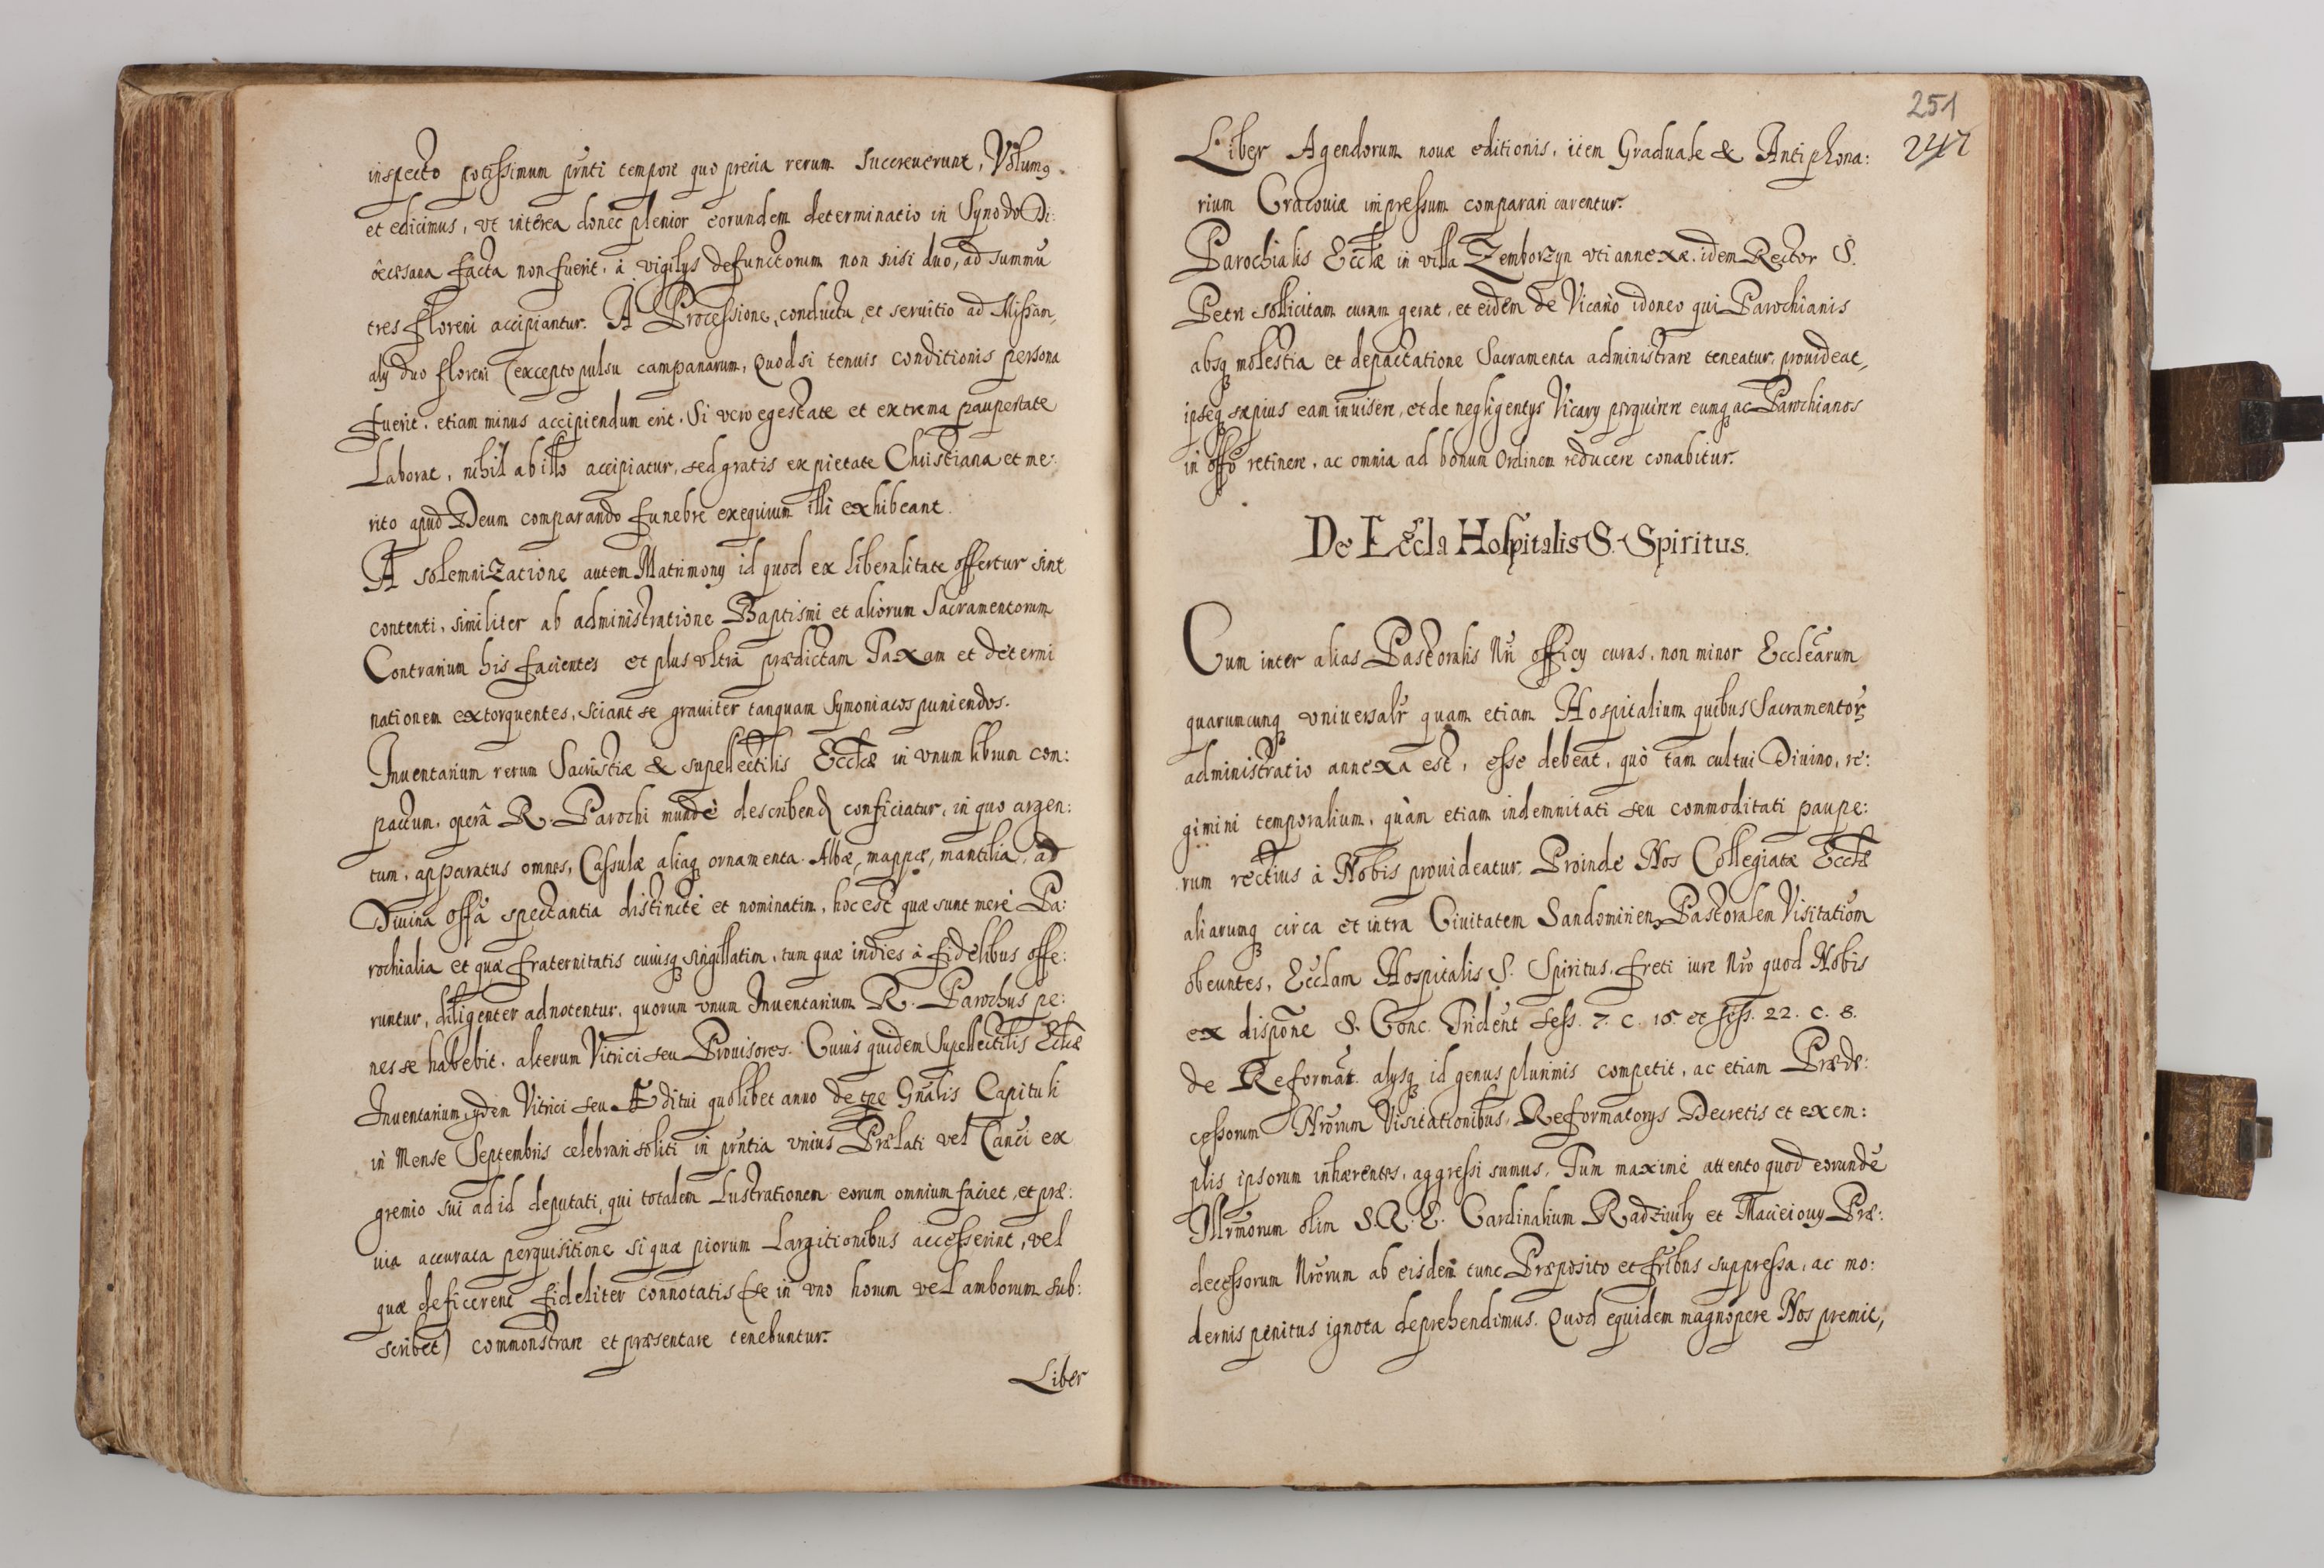 inspecto potissimum pñti tempore quo precia rerum succreuerunt, Volumꝯ
et edicimus, vt interea donec plenior eorundem determinatio in Synodo Di:
œcesana facta non fuerit, à vigilijs defunctorum non nisi duo, ad summũ
tres floreni accipiantur. A Processione, conductu, et seruitio ad Missam,
alij duo floreni (excepto pulsu campanarum, Quod si tenuis conditionis persona
fuerit, etiam minus accipiendum erit. Si vero egestate et extrema paupertate
Laborat, nihil ab illo accipiatur, sed gratis ex pietate Christiana et me:
rito apud Deum comparando funebre exequium illi exhibeant.
A solemnizatione autem Matrimonij id quod ex liberalitate offertur sint
contenti, similiter ab administratione Baptismi et aliorum Sacramentorum
Contrarium his facientes et plus vltra prædictam Taxam et determi
nationem extorquentes, sciant se grauiter tanquam Symoniacos puniendos.
Inuentarium rerum Sacristiæ & supellectilis Eccłæ in vnum librum com:
pactum, operâ R. Parochi mundè describend conficiatur, in quo argen:
tum, apparatus omnes, Cassulæ aliaq ornamenta. Albæ, mappæ, mantilia, ad
Diuina offa spectantia distinctè et nominatim, hoc est quæ sunt merè Pa:
rochialia et quæ fraternitatis cuiusq singillatim, tum quæ indies à fidelibus offe:
runtur, diligenter adnotentur, quorum vnum Inuentarium R. Parochus pe:
nes se habebit, alterum Vitrici seu Prouisores. Cuius quidem Supellectilis Ecłæ
Inuentarium, ijdem Vitrici seu Æditui quolibet anno de tpe Gñalis Capituli
in Mense Septembris celebrari soliti in pñtia vnius Prælati vel Canci ex
gremio sui ad id deputati, qui totalem Lustrationem eorum omnium faciet, et præ:
uia accurata perquisitione si quæ piorum Largitionibus accesserint, vel
quæ deficerent fideliter connotatis (se in vno horum vel amborum sub:
scribet) commonstrare et præsentare tenebuntur.
Liber
251
247
Liber Agendorum nouæ editionis, item Graduale & Antiphona:
rium Cracouiæ impressum comparari curentur.
Parochialis Eccłæ in villa Zemborzyn vti annexæ, idem Rector S.
Petri sollicitam curam gerat, et eidem de Vicario idoneo qui Parochianis
absq molestia et depactatione Sacramenta administrare teneatur, prouideat,
ipseq sæpius eam inuisere, et de negligentijs Vicarij perquirere eumq ac Parochianos
in offo retinere, ac omnia ad bonum ordinem reducere conabitur.
De Eccla Hospitalis S. Spiritus.
Cum inter alias Pastoralis Nri officij curas, non minor Ecclearum
quarumcunq vniversalr quam etiam Hospitalium quibus Sacramentorꝝ
administratio annexa est, esse debeat, quò tam cultui Diuino, re:
gimini temporalium, quàm etiam indemnitati seu commoditati paupe:
rum rectius à Nobis prouideatur. Proinde Nos Collegiatæ Eccłæ
aliarumq circa et intra Ciuitatem Sandomirien Pastoralem Visitationem
obeuntes, Ecclam Hospitalis S. Spiritus, freti iure Nro quod Nobis
ex dispone S. Conc. Trident Sess. 7. c. 15. et sess. 22. c. 8.
de Reformat. alijsq id genus plurimis competit, ac etiam Præde:
cessorum Nrorum Visitationibus, Reformatorijs Decretis et exem:
plis ipsorum inhærentes, aggressi sumus, Tum maximè attento quod eorundẽ
Illrmorum olim S.R.E. Cardinalium Radziuily et Macieiouij Præ:
decessorum Nrorum ab eisdem tunc Præposito et fribus suppressa, ac mo:
dernis penitus ignota deprehendimus. Quod equidem magnopere Nos premit,